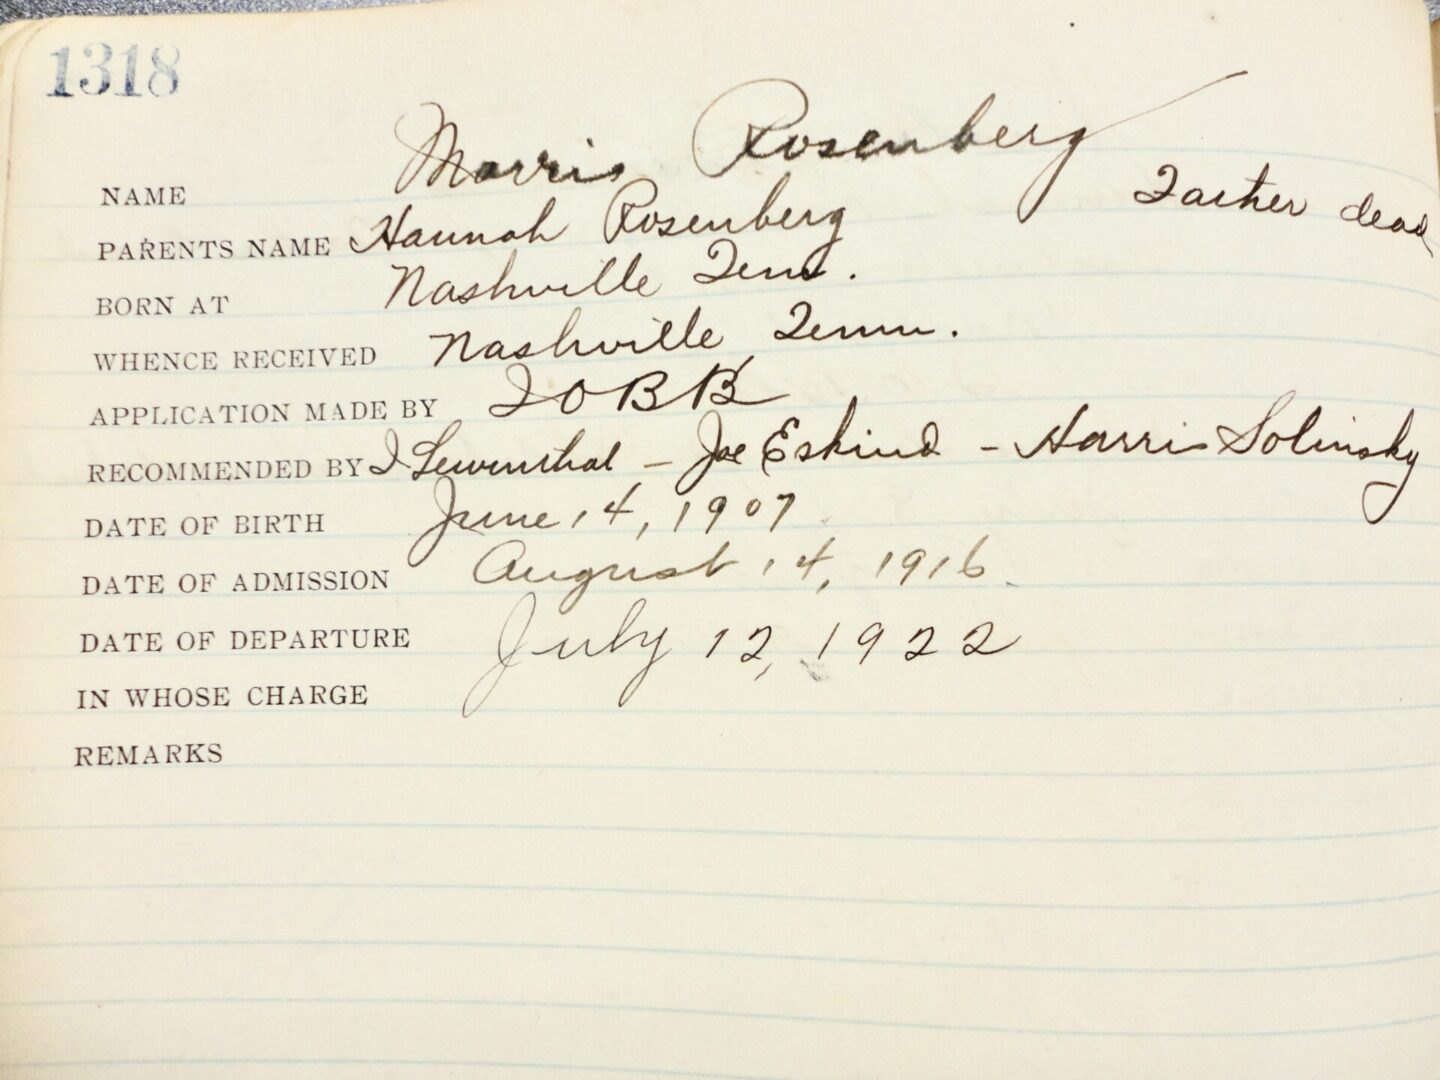 1318
NAME Morris Rosenberg
PARENTS NAME Hannah Rosenberg Father dead
BORN AT Nashville Tenn.
WHENCE RECEIVED Nashville Tenn.
APPLICATION MADE BY IOBB
RECOMMENDED BY I Lewenthal - Joe Eskind - Harris Solinsky
DATE OF BIRTH June 14, 1907
DATE OF ADMISSION August 14, 1916
DATE OF DEPARTURE July 12, 1922
IN WHOSE CHARGE
REMARKS